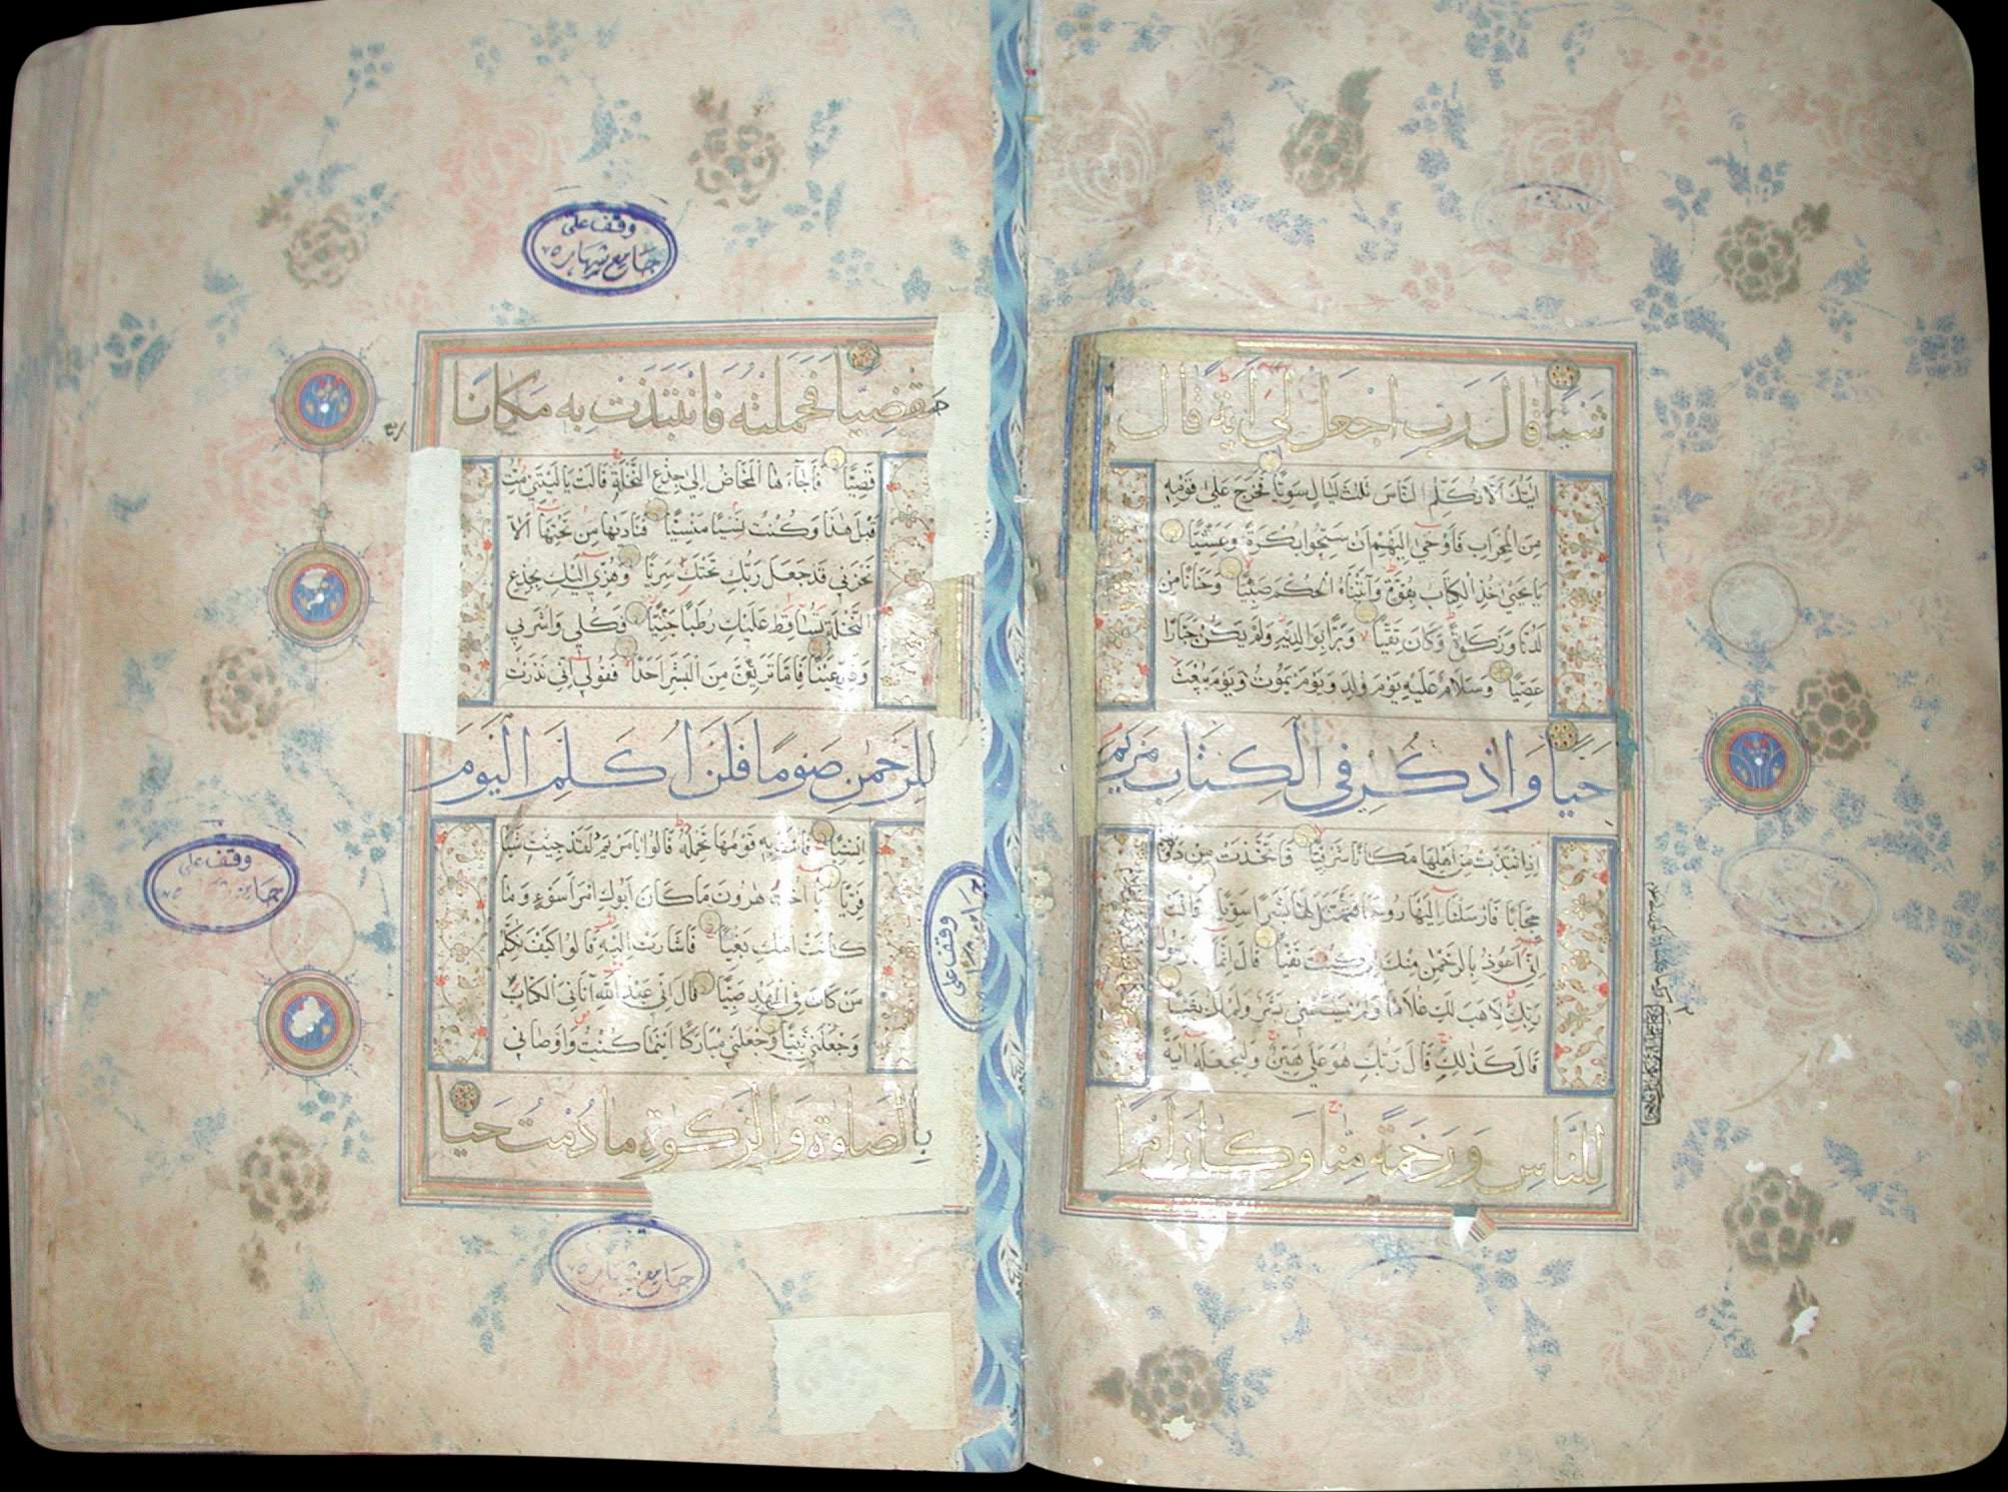 شَيْـًٔا قَالَ رَبِّ اجْعَلْ لِي اٰيَةً قَالَ
اٰيَتُكَ اَلَّا تُكَلِّمَ النَّاسَ ثَلٰثَ لَيَالٍ سَوِيًّا فَخَرَجَ عَلٰى قَوْمِهِ
مِنَ الْمِحْرَابِ فَاَوْحٰى اِلَيْهِمْ اَنْ سَبِّحُوا بُكْرَةً وَعَشِيًّا
يَا يَحْيٰى خُذِ الْكِتَابَ بِقُوَّةٍ وَآتَيْنَاهُ الْحُكْمَ صَبِيًّا وَحَنَانًا مِنْ
لَدُنَّا وَزَكٰوةً وَكَانَ تَقِيًّا وَبَرًّا بِوَالِدَيْهِ وَلَمْ يَكُنْ جَبَّارًا
عَصِيًّا وَسَلَامٌ عَلَيْهِ يَوْمَ وُلِدَ وَيَوْمَ يَمُوتُ وَيَوْمَ يُبْعَثُ
حَيًّا وَاذْكُرْ فِي الْكِتَابِ مَرْيَمَ
اِذِ انْتَبَذَتْ مِنْ اَهْلِهَا مَكَانًا شَرْقِيًّا فَاتَّخَذَتْ مِنْ دُونِهِمْ
حِجَابًا فَاَرْسَلْنَا اِلَيْهَا رُوحَنَا فَتَمَثَّلَ لَهَا بَشَرًا سَوِيًّا قَالَتْ
اِنِّي اَعُوذُ بِالرَّحْمٰنِ مِنْكَ اِنْ كُنْتَ تَقِيًّا قَالَ اِنَّمَا اَنَا رَسُولُ
رَبِّكِ لِاَهَبَ لَكِ غُلَامًا وَلَمْ يَمْسَسْنِي بَشَرٌ وَلَمْ اَكُ بَغِيًّا
قَالَ كَذٰلِكِ قَالَ رَبُّكِ هُوَ عَلَيَّ هَيِّنٌ وَلِنَجْعَلَهُ اٰيَةً
لِلنَّاسِ وَرَحْمَةً مِنَّا وَكَانَ اَمْرًا
مَقْضِيًّا فَحَمَلَتْهُ فَانْتَبَذَتْ بِهِ مَكَانًا
قَصِيًّا فَاَجَآءَهَا الْمَخَاضُ اِلٰى جِذْعِ النَّخْلَةِ قَالَتْ يَا لَيْتَنِي مِتُّ
قَبْلَ هٰذَا وَكُنْتُ نَسْيًا مَنْسِيًّا فَنَادٰىهَا مِنْ تَحْتِهَا اَلَّا
تَحْزَنِي قَدْ جَعَلَ رَبُّكِ تَحْتَكِ سَرِيًّا وَهُزِّي اِلَيْكِ بِجِذْعِ
النَّخْلَةِ تُسَاقِطْ عَلَيْكِ رُطَبًا جَنِيًّا فَكُلِي وَاشْرَبِي
وَقَرِّي عَيْنًا فَاِمَّا تَرَيِنَّ مِنَ الْبَشَرِ اَحَدًا فَقُولِي اِنِّي نَذَرْتُ
لِلرَّحْمٰنِ صَوْمًا فَلَنْ اُكَلِّمَ الْيَوْمَ
اِنْسِيًّا فَاَتَتْ بِهِ قَوْمَهَا تَحْمِلُهُ قَالُوا يَا مَرْيَمُ لَقَدْ جِئْتِ شَيْئًا
فَرِيًّا يَا اُخْتَ هٰرُونَ مَا كَانَ اَبُوكِ امْرَاَ سَوْءٍ وَمَا
كَانَتْ اُمُّكِ بَغِيًّا فَاَشَارَتْ اِلَيْهِ قَالُوا كَيْفَ نُكَلِّمُ
مَنْ كَانَ فِي الْمَهْدِ صَبِيًّا قَالَ اِنِّي عَبْدُ اللّٰهِ آتَانِيَ الْكِتَابَ
وَجَعَلَنِي نَبِيًّا وَجَعَلَنِي مُبَارَكًا اَيْنَمَا كُنْتُ وَاَوْصَانِي
بِالصَّلٰوةِ وَالزَّكٰوةِ مَا دُمْتُ حَيًّا
وقف على
جامع شهاره
وقف على
وقف على
جامع شهاره